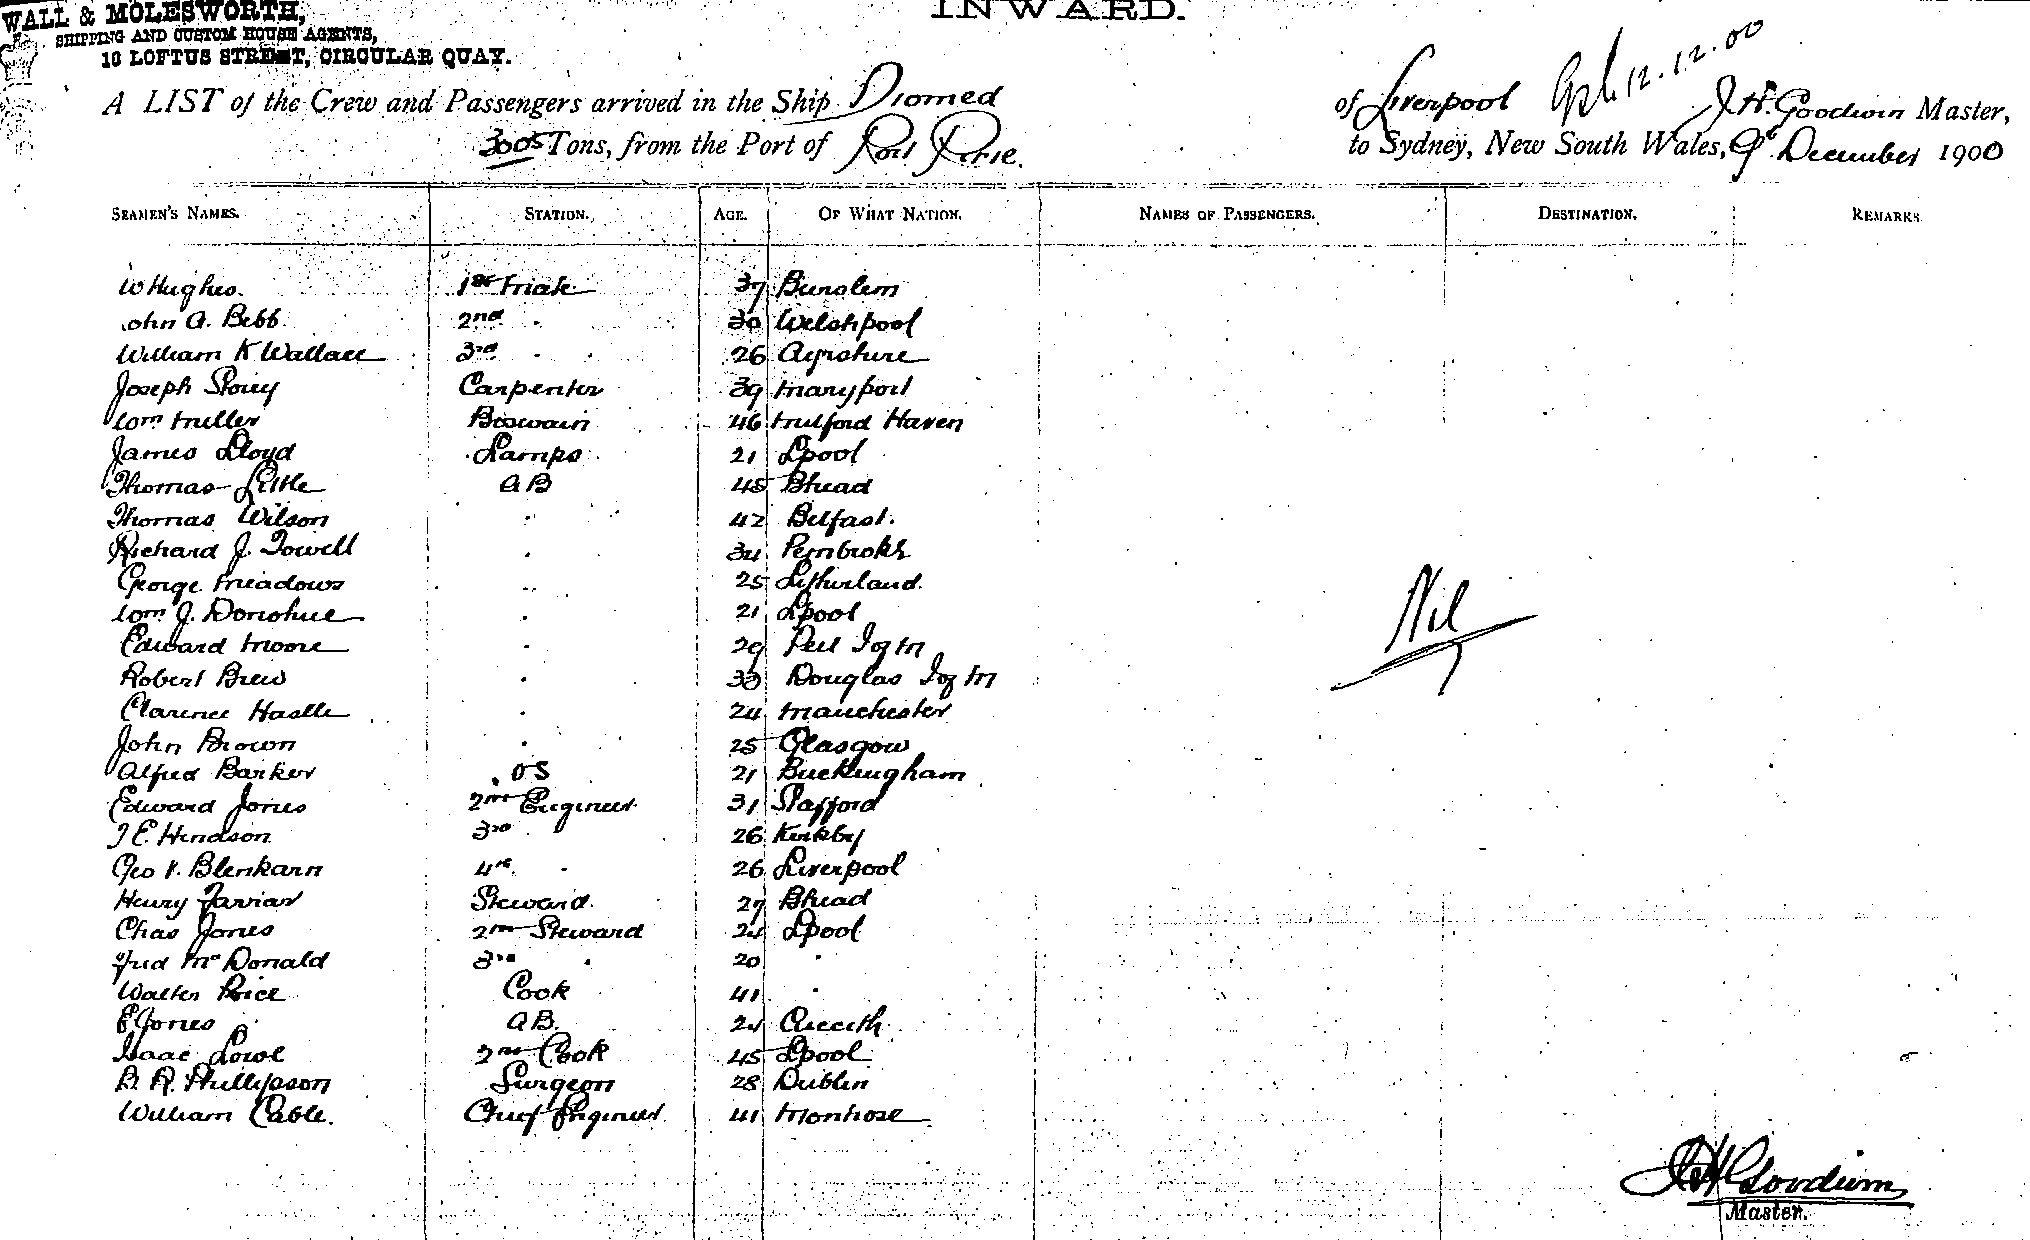 INWARD.
WALL & MOLESWORTH,
SHIPPING AND CUSTOM HOUSE AGENTS,
10 LOFTUS STREET, CIRCULAR QUAY.
12.12.00
A LIST of the Crew and Passengers arrived in the Ship Diomed of Liverpool J. H. Goodwin Master,
3005 Tons, from the Port of Port Pirie. to Sydney, New South Wales, 9th December 1900
SEAMEN'S NAMES. STATION. AGE. OF WHAT NATION. NAMES OF PASSENGERS. DESTINATION. REMARKS
W Hughes. 1st Mate 37 Burslem
John A. Bebb. 2nd . 30 Welshpool
William K Wallace 3rd . . 26 Ayrshire
Joseph Storey Carpenter 39 Maryport
Wm Miller Boswain 46 Milford Haven
James Lloyd Lamps 21 Lpool
Thomas Little AB 45 Bhead
Thomas Wilson . 42 Belfast.
Richard J. Towell . 34 Pembroke
George Meadows . 25 Litherland.
Wm J. Donohue . 21 Lpool
Edward Moore . 29 Peel I of M
Robert Brew . 33 Douglas I of M
Clarence Hastle . 24 Manchester
John Brown . 25 Glasgow
Alfred Barker OS 21 Buckingham
Edward Jones 2nd Engineer 31 Stafford
J E. Hindson 3rd . 26 Kirkby
Geo V. Blenkarn 4th . 26 Liverpool
Henry Farriar Steward. 27 Bhead
Chas Jones 2nd Steward 24 Lpool
Fred McDonald 3rd . 20 .
Walter Price Cook 41 .
E Jones AB. 24 Criccith
Isaac Lowe 2nd Cook 45 Lpool
B. R. Phillipson Surgeon 28 Dublin
William Cable. Chief Engineer 41 Montrose
Nil
J H Goodwin
Master.